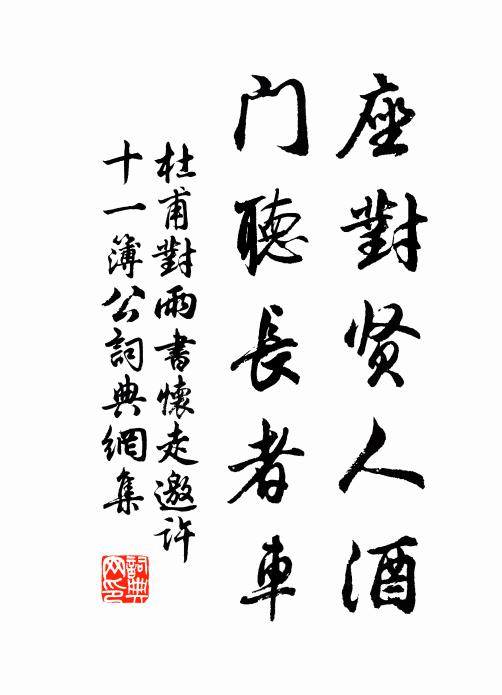 座對贤人酒
門聽長者車
杜甫對雨書懷走邀許
十一簿公詞典網集
詞典
网印